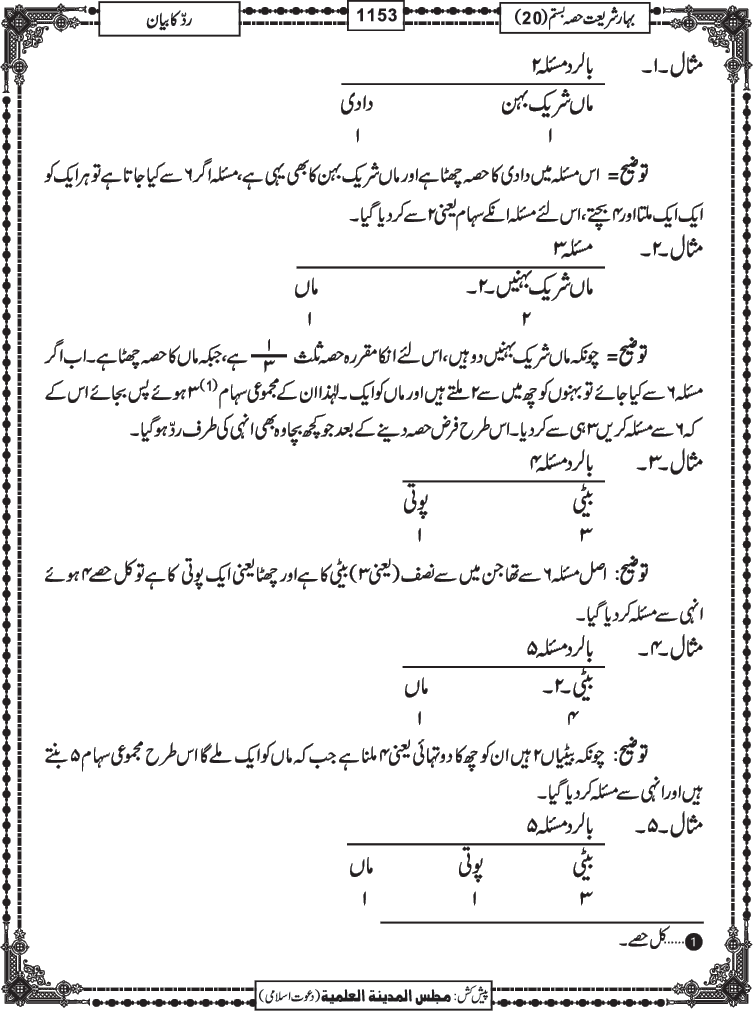 بہارِ شریعت حصہ بستم (20) 1153 ردّ کا بیان
مثال ۔۱۔ بالرد مسئلہ ۲
ماں شریک بہن دادی
۱ ۱
توضیح= اس مسئلہ میں دادی کا حصہ چھٹا ہے اور ماں شریک بہن کا بھی یہی ہے، مسئلہ اگر ۶ سے کیا جاتا ہے تو ہر ایک کو
ایک ایک ملتا اور ۴ بچتے، اس لئے مسئلہ انکے سہام یعنی ۲ سے کر دیا گیا۔
مثال ۔۲۔ مسئلہ ۳
ماں شریک بہنیں ۔۲۔ ماں
۲ ۱
توضیح= چونکہ ماں شریک بہنیں دو ہیں، اس لئے انکا مقررہ حصہ ثلث ۱/۳ ہے، جبکہ ماں کا حصہ چھٹا ہے۔ اب اگر
مسئلہ ۶ سے کیا جائے تو بہنوں کو چھ میں سے ۲ ملتے ہیں اور ماں کو ایک ۔ لہٰذا ان کے مجموعی سہام (1) ۳ ہوئے پس بجائے اس کے
کہ ۶ سے مسئلہ کریں ۳ ہی سے کر دیا۔ اس طرح فرض حصہ دینے کے بعد جو کچھ بچا وہ بھی انہی کی طرف ردّ ہو گیا۔
مثال ۔۳۔ بالرد مسئلہ ۴
بیٹی پوتی
۳ ۱
توضیح: اصل مسئلہ ۶ سے تھا جن میں سے نصف (یعنی ۳) بیٹی کا ہے اور چھٹا یعنی ایک پوتی کا ہے تو کل حصے ۴ ہوئے
انہی سے مسئلہ کر دیا گیا۔
مثال ۔۴۔ بالرد مسئلہ ۵
بیٹی ۔۲۔ ماں
۴ ۱
توضیح: چونکہ بیٹیاں ۲ ہیں ان کو چھ کا دو تہائی یعنی ۴ ملنا ہے جب کہ ماں کو ایک ملے گا اس طرح مجموعی سہام ۵ بنتے
ہیں اور انہی سے مسئلہ کر دیا گیا۔
مثال ۔۵۔ بالرد مسئلہ ۵
بیٹی پوتی ماں
۳ ۱ ۱
1 ......کل حصے۔
پیش کش: مجلس المدینة العلمیة (دعوت اسلامی)